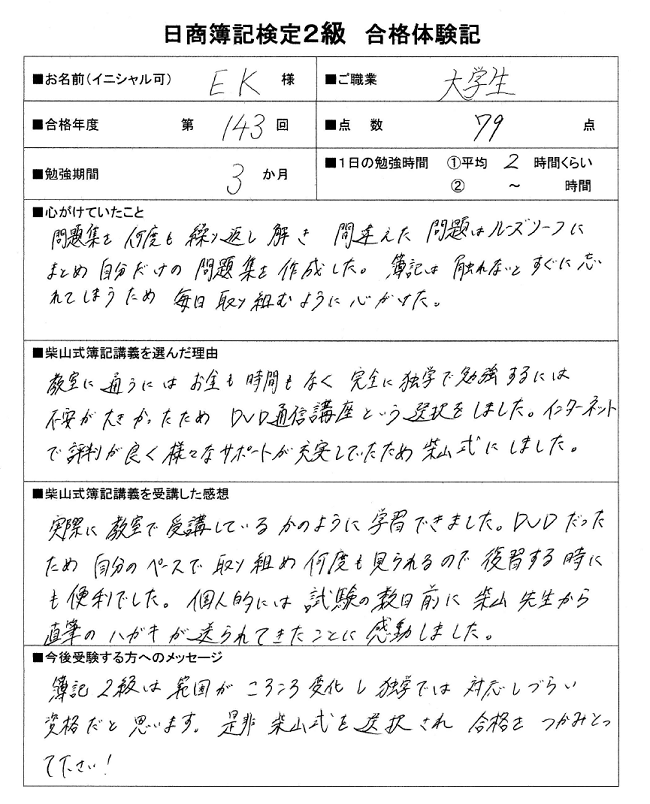 日商簿記検定2級 合格体験記
■お名前(イニシャル可) EK 様 ■ご職業 大学生
■合格年度 第 143 回 ■点 数 79 点
■勉強期間 3 か月 ■1日の勉強時間 ①平均 2 時間くらい
② ～ 時間
■心がけていたこと
問題集を何度も繰り返し解き 間違えた問題はルーズリーフに
まとめ自分だけの問題集を作成した。簿記は触れないとすぐに忘
れてしまうため 毎日取り組むように心がけた。
■柴山式簿記講義を選んだ理由
教室に通うにはお金も時間もなく 完全に独学で勉強するには
不安が大きかったため DVD通信講座という選択をしました。インターネット
で評判が良く様々なサポートが充実していたため柴山式にしました。
■柴山式簿記講義を受講した感想
実際に教室で受講しているかのように学習できました。DVDだった
ため 自分のペースで取り組め何度も見られるので復習する時に
も便利でした。個人的には試験の数日前に柴山先生から
直筆のハガキが送られてきたことに感動しました。
■今後受験する方へのメッセージ
簿記2級は範囲がころころ変化し独学では対応しづらい
資格だと思います。是非柴山式を選択され合格をつかみとっ
て下さい!